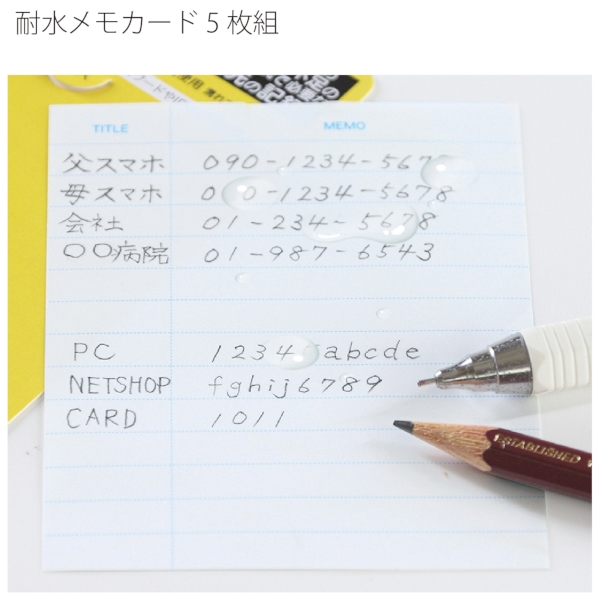 耐水メモカード5枚組
TITLE MEMO
父スマホ 090-1234-567
母スマホ 0 0-1234-5678
会社 01-234-5678
〇〇病院 01-987-6543
PC 1234 abcde
NETSHOP fghij6789
CARD 1011
ESTABLISHED